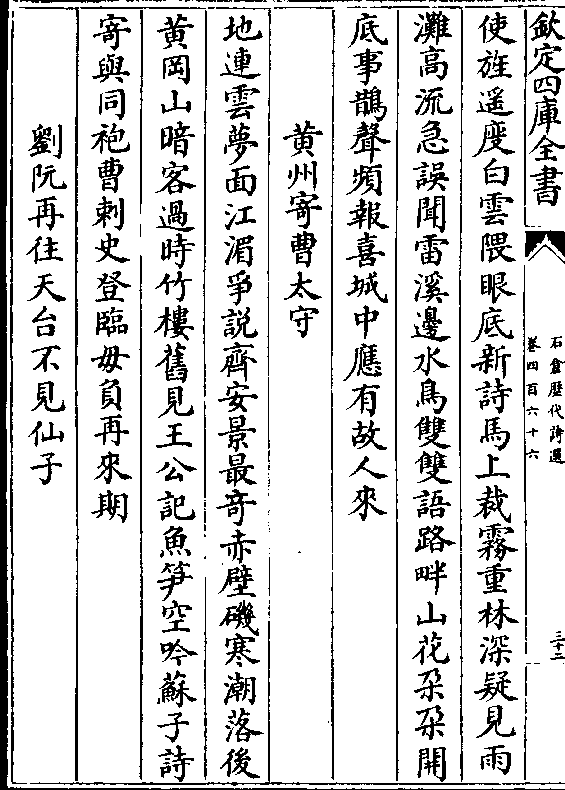 欽定四庫全書
石倉歴代詩選
卷四百六十六
三十二
使旌遥度白雲隈眼底新詩馬上裁霧重林深疑見雨
灘高流急誤聞雷溪邊水鳥雙雙語路畔山花朶朶開
底事鵲聲頻報喜城中應有故人來
黄州寄曹太守
地連雲夢面江湄爭説齊安景最竒赤壁磯寒潮落後
黄岡山暗客過時竹樓舊見王公記魚笋空吟蘇子詩
寄與同袍曹刺史登臨毋負再來期
劉阮再往天台不見仙子